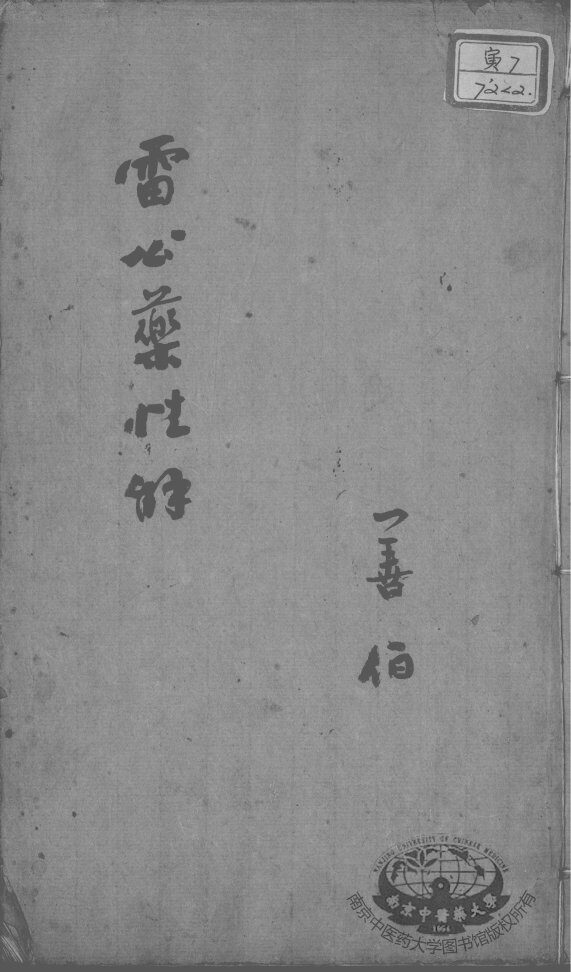 寅7
7222.
雷公藥性解
一善伯
NANJING UNIVERSITY OF CHINESE MEDICINE
南京中醫藥大學
1954
南京中医药大学图书馆版权所有